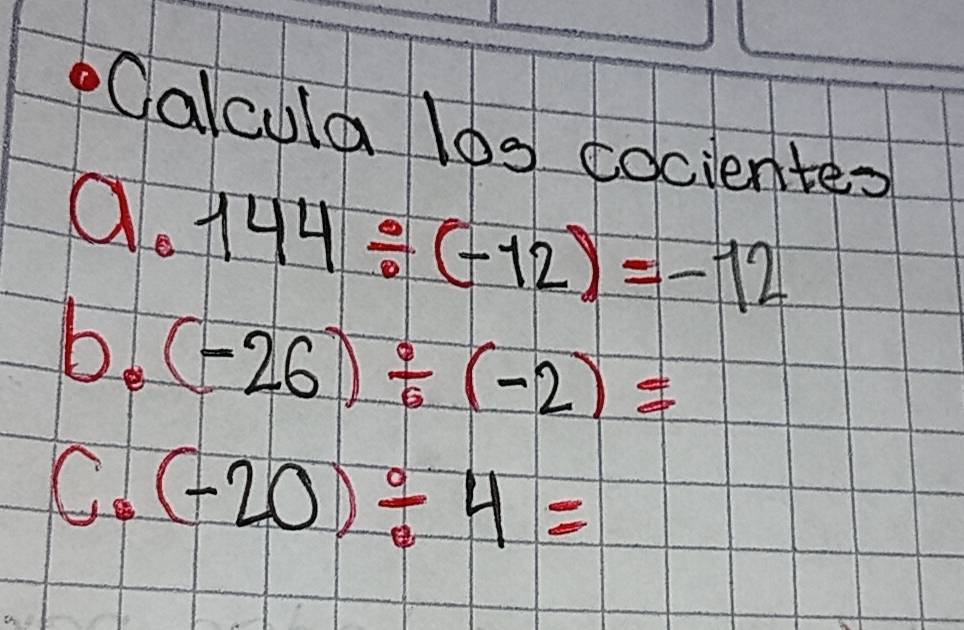 •Calcula los cocientes
a. 144 ÷ (-12) = -12
b. (-26) ÷ (-2) =
C. (-20) ÷ 4 =